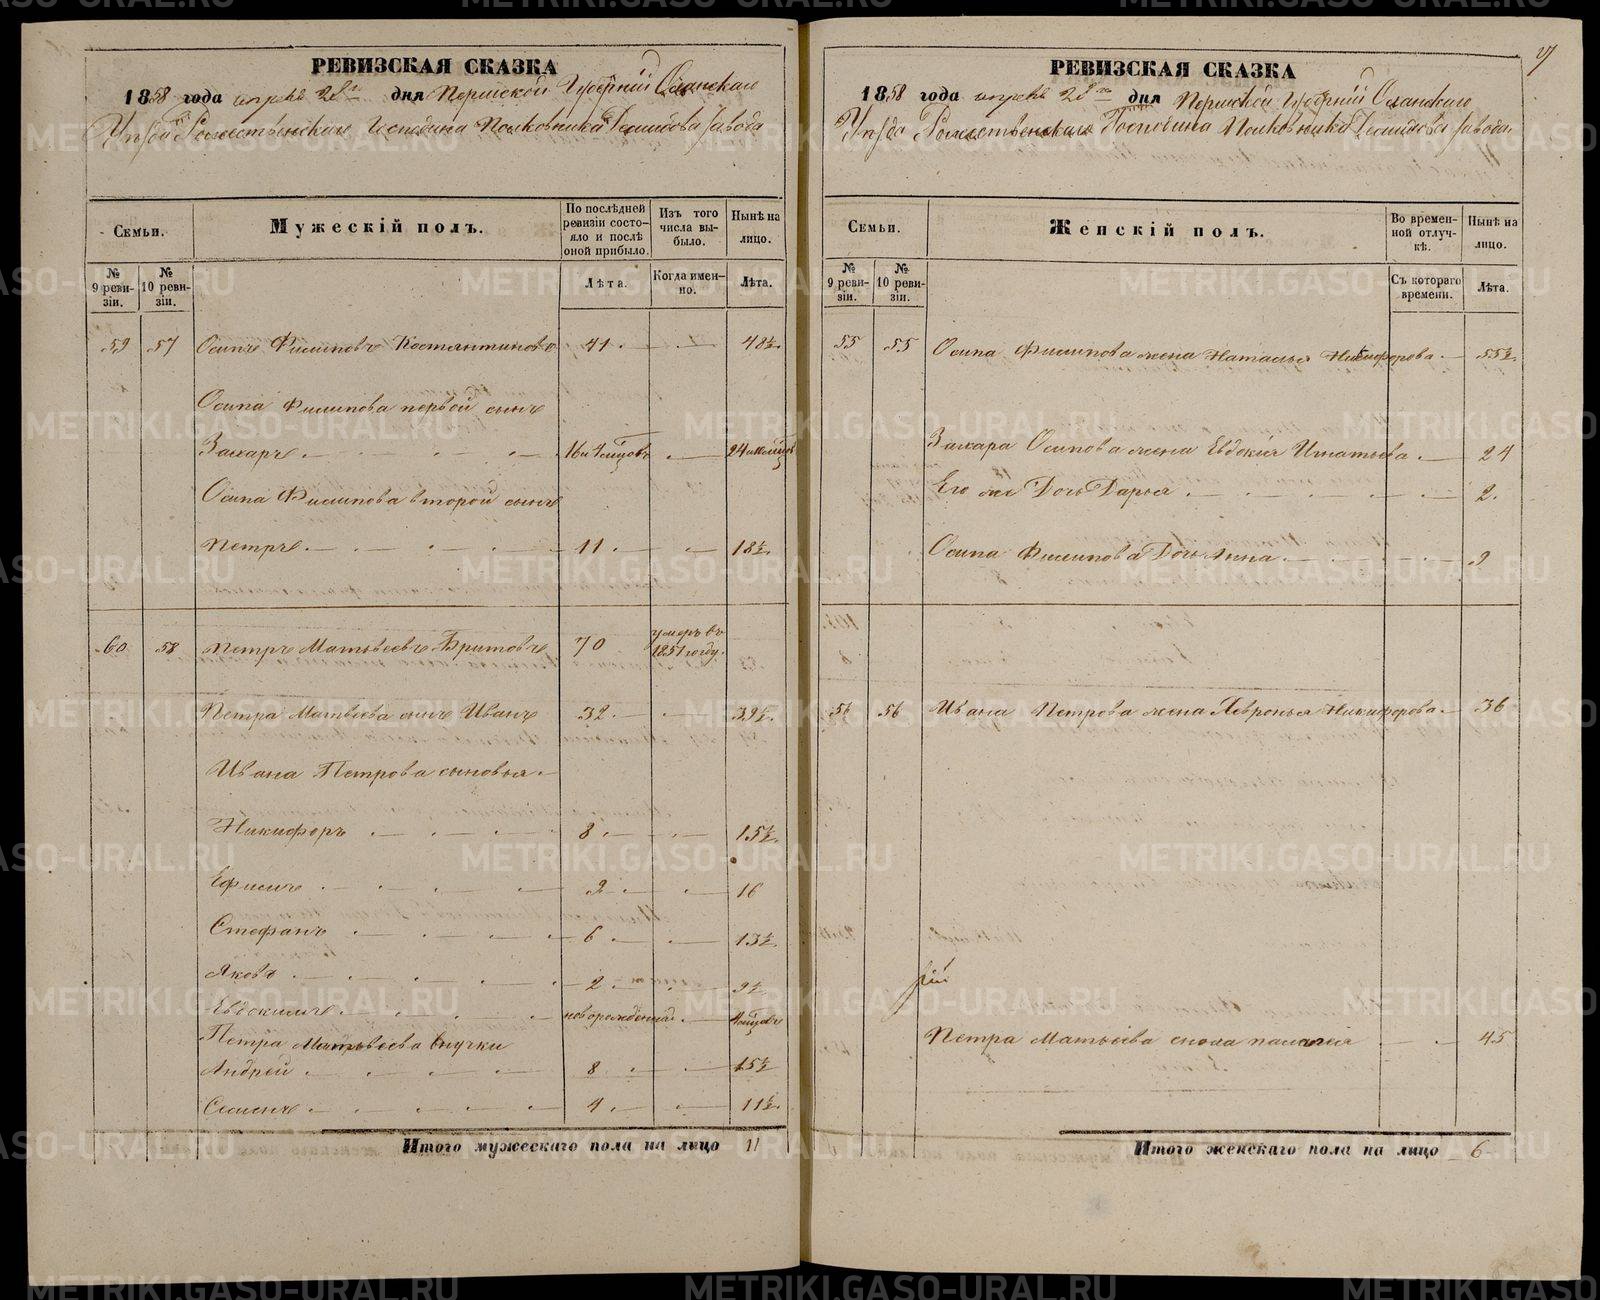 РЕВИЗСКАЯ СКАЗКА
1858 года апреля 28го дня Пермской Губерніи Оханскаго
Уѣзда Рожественскаго Господина Полковника Демидова завода
Семьи.
Мужескій полъ.
По послѣдней ревизіи состояло и послѣ оной прибыло.
Изъ того числа выбыло.
Нынѣ на лицо.
№ 9 ревизіи.
№ 10 ревизіи.
Лѣта.
Когда именно.
Лѣта.
59 57 Осипъ Филиповъ Костянтиновъ 41 48½
Осипа Филипова первой сынъ
Захаръ 16
Осипа Филипова второй сынъ
Петръ 11 18½
60 58 Петръ Матвѣевъ Бритовъ 70 умеръ въ 1851 году.
Петра Матвѣева сынъ Иванъ 32 39½
Ивана Петрова сыновья
Никифоръ 8 15½
Ефимъ 9 16
Стефанъ 6 13½
Яковъ 2 9½
Евдокимъ новорожденный
Петра Матвѣева внучки
Андрей 8 15½
Семенъ 4 11½
Итого мужескаго пола на лицо 11
27
РЕВИЗСКАЯ СКАЗКА
1858 года апреля 28го дня Пермской Губерніи Оханскаго
Уѣзда Рожественскаго Господина Полковника Демидова завода
Семьи.
Женскій полъ.
Во временной отлучкѣ.
Нынѣ на лицо.
№ 9 ревизіи.
№ 10 ревизіи.
Съ котораго времени.
Лѣта.
55 55 Осипа Филипова жена Наталья Никифорова 55½
Захара Осипова жена Евдокия Игнатьева 24
Его же Дочь Дарья 2
Осипа Филипова Дочь Анна 9
56 56 Ивана Петрова жена Февронья Никифорова 36
Петра Матвѣева сноха 45
Итого женскаго пола на лицо 6
METRIKI.GASO-URAL.RU